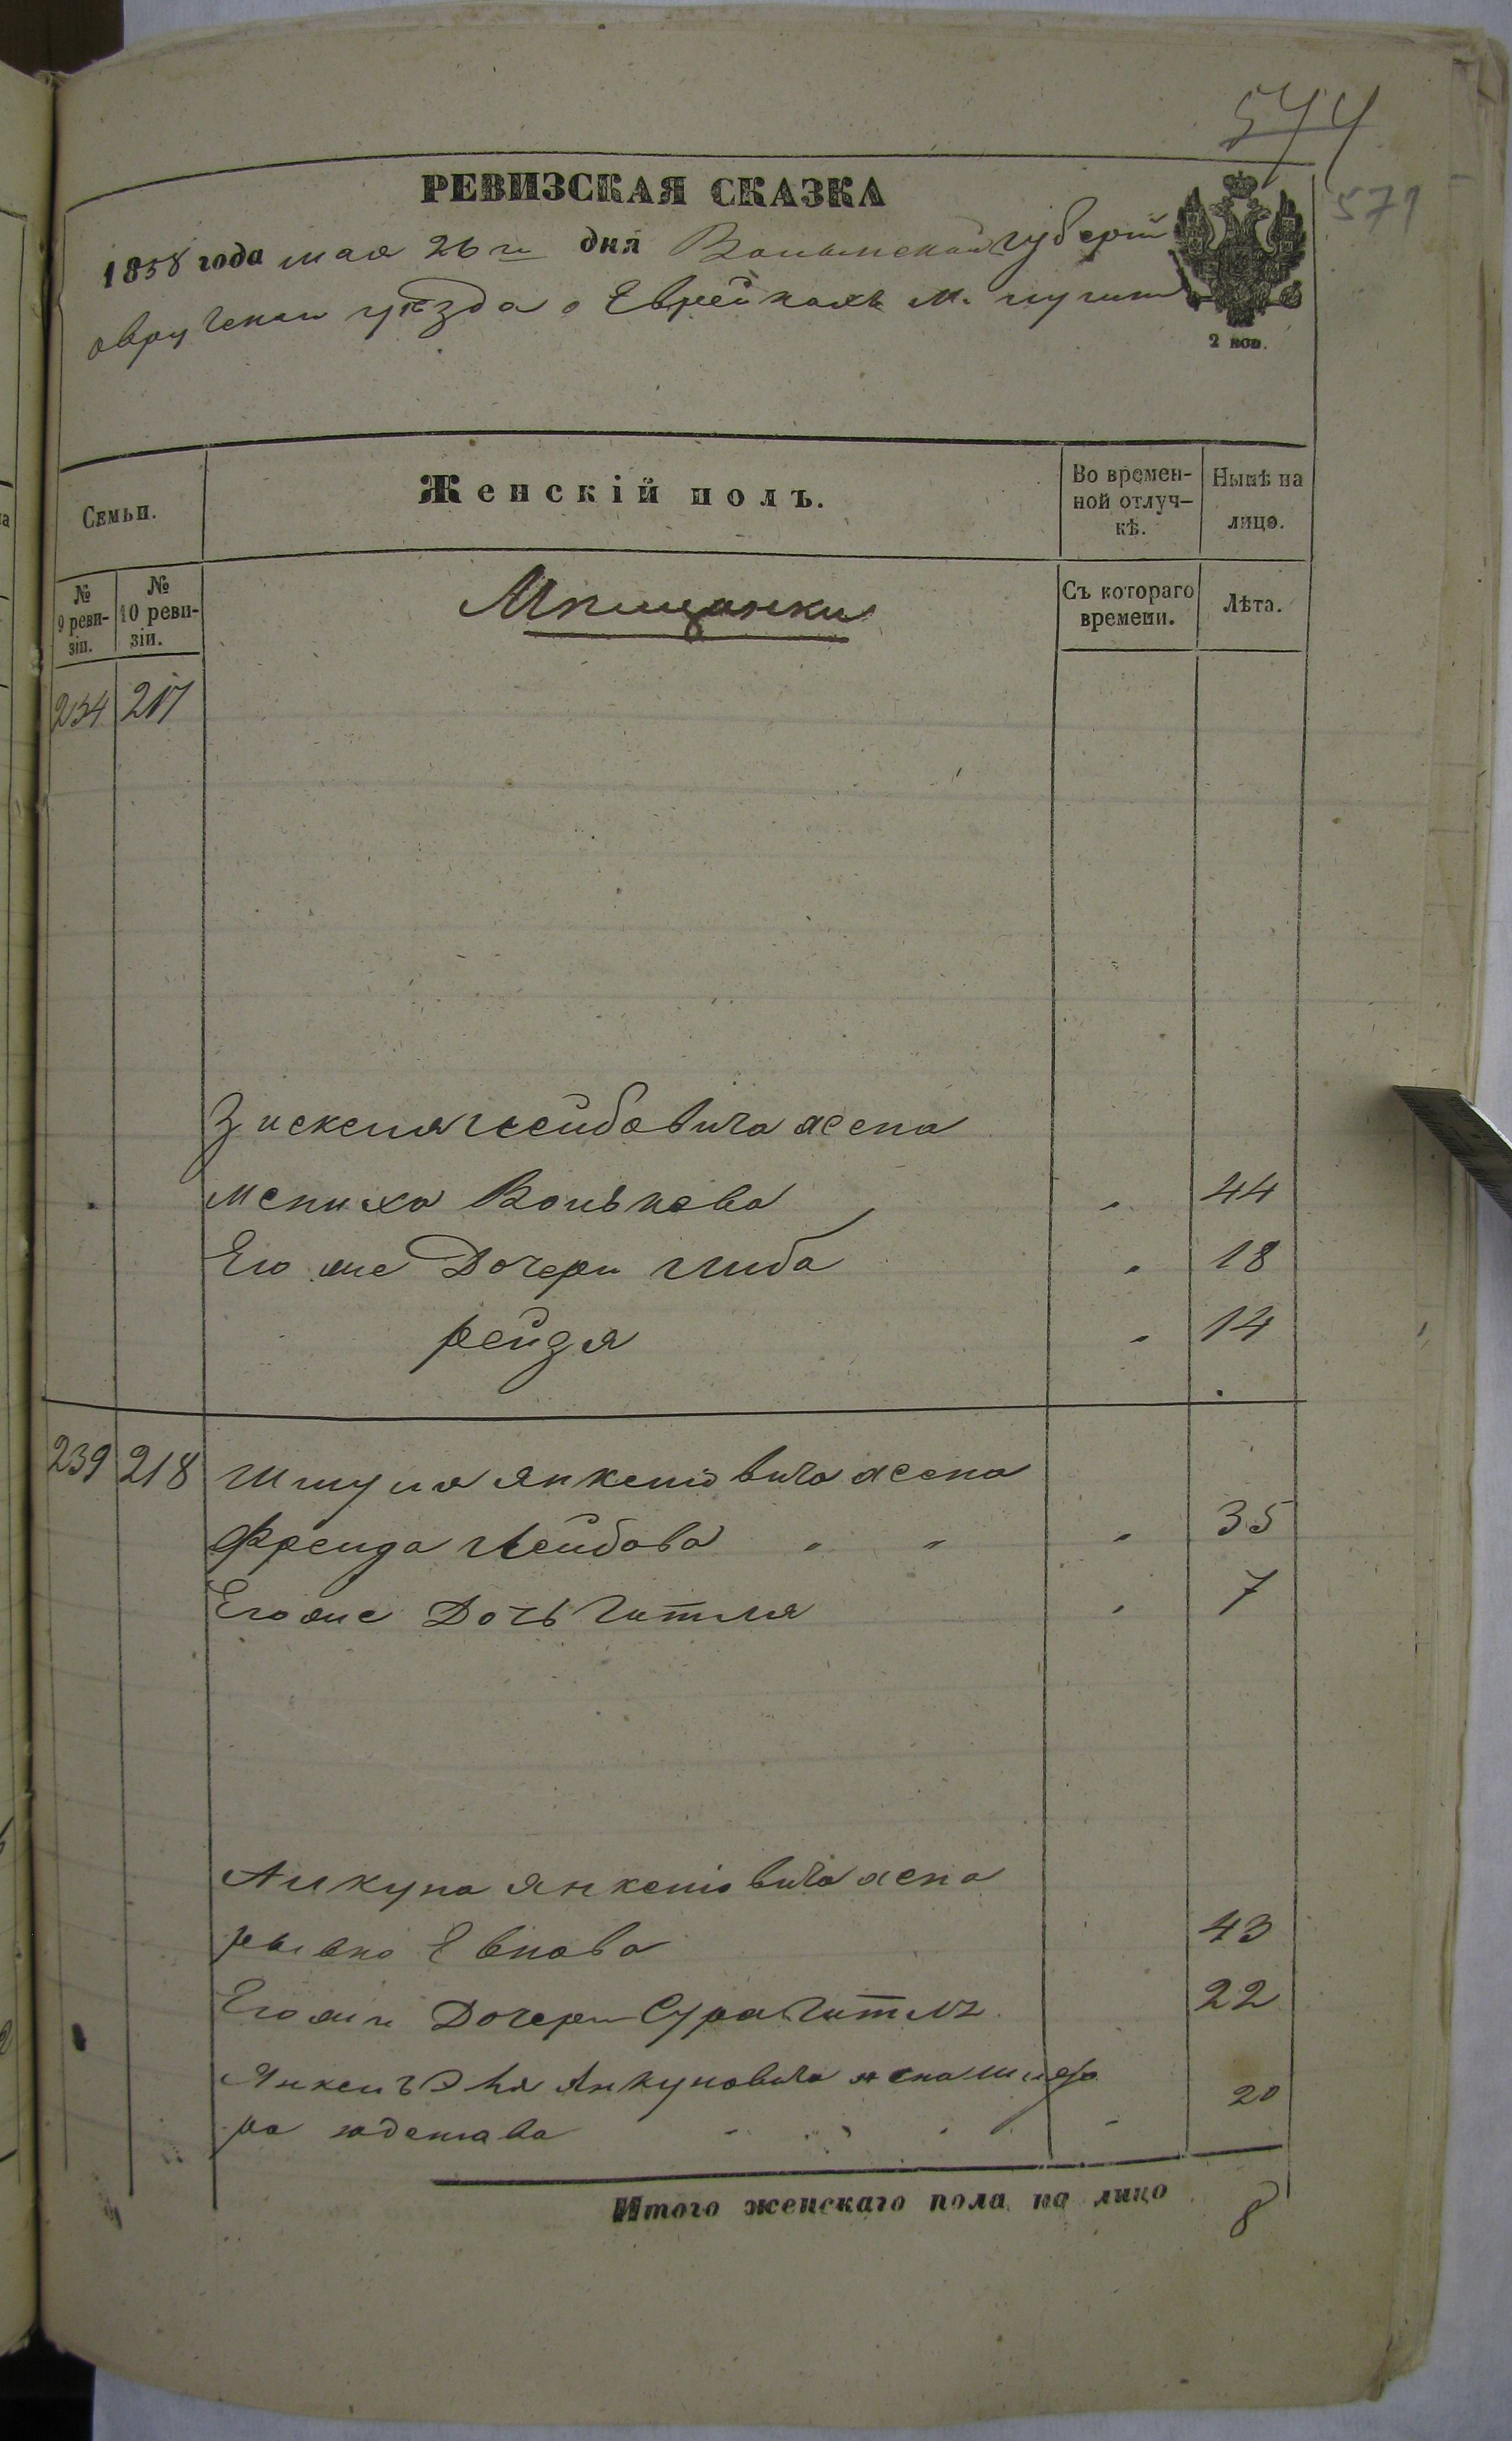 544
571
РЕВИЗСКАЯ СКАЗКА
1858 года мая 26го дня Волынской губерніи
овручскаго уѣзда о Еврейкахъ м.
2 коп.
Семьи.
Женскій полъ.
Во времен-
ной отлуч-
кѣ.
Нынѣ на
лицо.
№
9 реви-
зіи.
№
10 реви-
зіи.
Мѣщанки
Съ котораго
времени.
Лѣта.
234 217
Зискеля Лейбовича жена
Мениха Волькова 44
Его же Дочери Либа 18
рейзя 14
239 218 Шмуля Янкелиовича жена
Фрейда Лейбова 35
Его же Дочь Гитля 7
Янкелиовича жена
рывка Евнова 43
Его же Дочери Сура Гитля 22
Янкель Эля жена Шифра 20
ра юделева
Итого женскаго пола на лицо 8